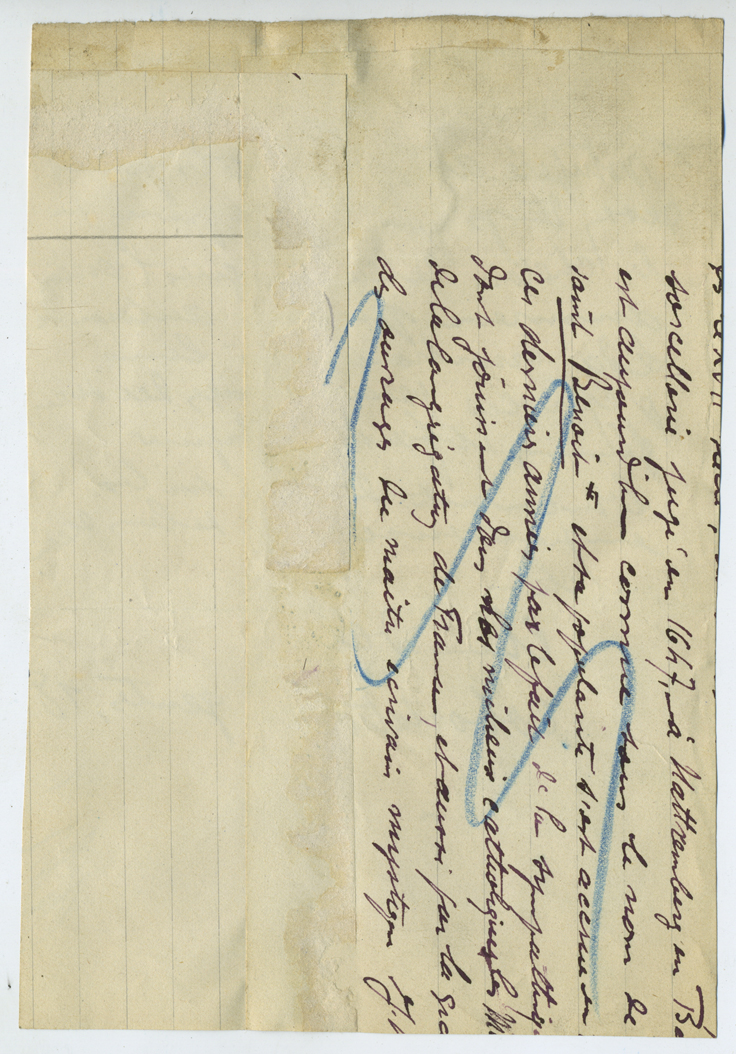 sorcellerie jugé en 1647, à Nattremberg en Ba
est aujourd'hui connue sous le nom de
saint Benoit et sa popularité s'est accrue en
ces dernières années, par le fait de la sympathie
dont jouissent dans les milieux catholiques les
de la Congrégation de France, et aussi par la
des ouvrages du maitre écrivain mystique J.